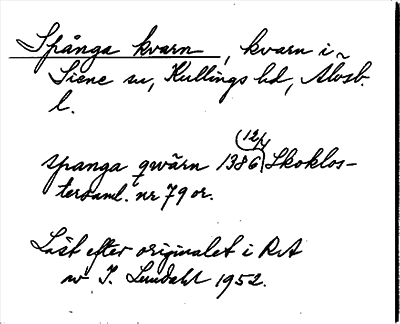 Spånga kvarn, kvarn i
Siene sn, Kullings hd, Älvsb.
l.
spanga qwärn 1386 (12/4) Skoklos-
tersaml. nr 79 or.
Läst efter originalet i RA
av I. Lundahl 1952.